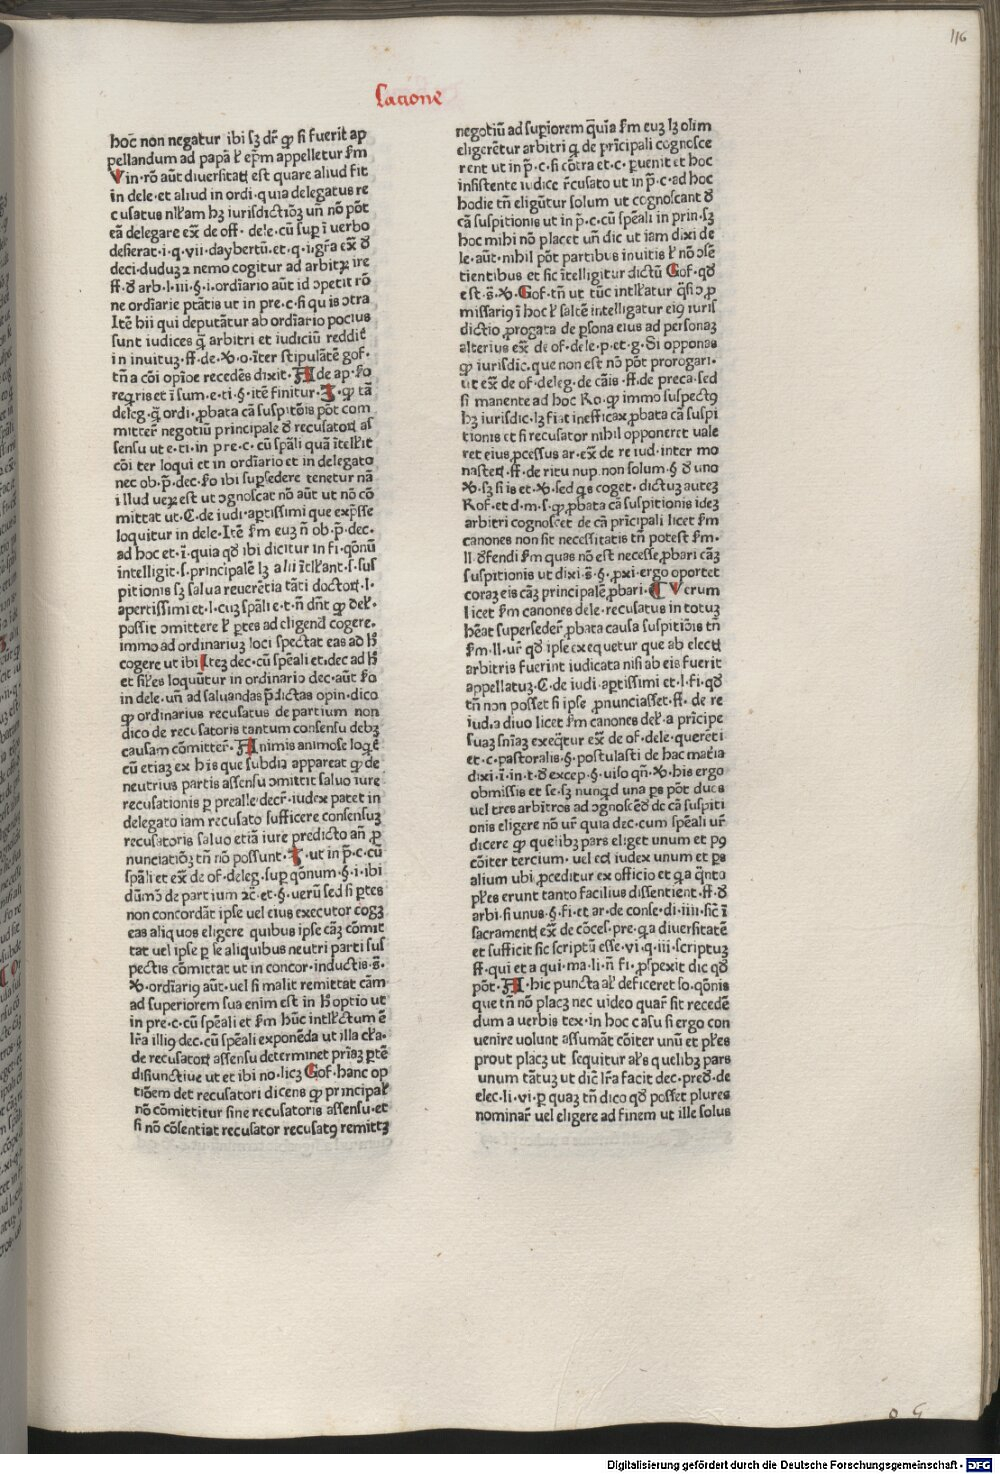 116
Lacione
hoc̄ non negatur ibi sꝫ dr̄ ꝙ si fuerit ap
pellandum ad papā ł ep̄m appelletur ẜm
Vin·rō aūt diuersitatꝭ est quare aliud fit
in dele·et aliud in ordi·quia delegatus re
cusatus nłłam hꝫ iurisdictiōꝫ un̄ nō pōt
eā delegare ex̄ de off·dele·cū suꝑ ī uerbo
desierat·i·q·vii·daybertū·et·q·iigr̄a ex̄ ꝺ
deci·duduꝫ ꝛ nemo cogitur ad arbitꝝ ire
ff·ꝺ arb·l·iii·§·i·ordīario aūt id ↄpetit rō
ne ordīarie ptātis ut in pre·c·si quis ↄtra
Itē hii qui deputātur ab ordīario pocius
sunt iudices q̄ arbitri et iudiciū reddit̄
in inuituꝫ·ff·de·V·o·īter stipulātē gof·
tn̄ a cōi opīoe recedēs dixit·A de ap·ſo
req̄ris et ī sum·e·ti·§·itē finitur·I·ꝙ tā
deleg·q̄ ordi·ꝓbata cā suspitōis pōt com
mitter̄ negotiū principale ꝺ recusatoꝝ as
sensu ut e·ti·in pre·c·cū sp̄ali quā ītełłit
cōi ter loqui et in ordīario et in delegato
nec ob·p̄·dec·ſo ibi suꝑsedere tenetur nā
illud ueꝝ est ut ↄgnoscat nō aūt ut nō cō
mittat ut·C·de iudi·aptissimi que exp̄sse
loquitur in dele·Itē ẜm euꝫ n̄ ob·p̄·dec·
ad hoc et·ī·quia qd̄ ibi dicitur in fi·qōnū
intelligit·s·principalē lꝫ alii ītełłant·s·sus
pitionis sꝫ salua reuerētia tāti doctoꝝ·l·
apertissimi et·l·cuꝫ sp̄ali e·t·n̄ dn̄t ꝙ deł·
possit ↄmittere ł ꝑtes ad eligend cogere·
immo ad ordinariuꝫ loci spectat eas ad h̄
cogere ut ibi Iteꝫ dec·cū sp̄eali et·dec ad h̄
et sił'es loquūtur in ordinario dec·aūt ſo
in dele·un̄ ad saluandas p̄dictas opin·dico
ꝙ ordinarius recusatus de partium non
dico de recusatoris tantum consensu debꝫ
causam cōmitter̄·A nimis animose loq̄r̄
cū etiaꝫ ex his que subdia appareat ꝙ de
neutrius partis assensu ↄmittit saluo iure
recusationis ꝑ prealle·decr̄·iudex patet in
delegato iam recusato sufficere consensuꝫ
recusatoris saluo etiā iure predicto an̄ ꝓ
nunciatiōꝫ tn̄ nō possunt·I·ut in p̄·c·cū
sp̄ali et ex̄ de of·deleg·suꝑ qōnum·§·i·ibi
dūmō de partium ꝛc̄·et·§·uerū sed si ꝑtes
non concordāt ipse uel eius executor cogꝫ
eas aliquos eligere quibus ipse cāꝫ cōmit
tat uel ipse ꝑ se aliquibus neutri parti sus
pectis cōmittat ut in concor·inductis·s̄·
V·ordīariꝯ aūt·uel si malit remittat cām
ad superiorem sua enim est in h̄ optio ut
in pre·c·cū sp̄eali et ẜm hūc intłłctum ē
lr̄a illiꝯ dec·cū sp̄eali exponēda ut illa cła·
de recusatoꝝ assensu determinet prīaꝫ ꝑtē
disiunctiue ut et ibi no·licꝫ Gof·hanc op
tiōem det recusatori dicens ꝙ principał
nō cōmittitur sine recusatoris assensu·et
si nō cōsentiat recusator recusatꝯ remittꝫ
negotiū ad suꝑiorem quia ẜm euꝫ lꝫ olim
eligerētur arbitri q̄ de prīcipali cognosce
rent ut in p̄·c·si cōtra et·c·ꝑuenit et hoc
insistente iudice r̄cusato ut in p̄·c·ad hoc
hodie tn̄ eligūtur solum ut cognoscant ꝺ
cā suspitionis ut in p̄·c·cū sp̄eali in prin·sꝫ
hoc mihi nō placet un̄ dic ut iam dixi de
le·aūt·nihil pōt partibus inuitis ł nō ↄsē
tientibus et sic ītelligitur dictū Gof·qd̄
est·s̄·V·Gof·tn̄ ut tūc intłłatur q̄si ↄꝓ
missariꝯ ī hoc ł saltē intelligatur eiꝯ iuris
dictio ꝓrogata de ꝑsona eius ad personaꝫ
alterius ex̄ de of·dele·p·et·g·Si opponas
ꝙ iurisdic·que non est nō pōt prorogari·
ut ex̄ de of·deleg·de cāis·ff·de preca·sed
si manente ad hoc Ro·ꝙ immo suspectꝯ
hꝫ iurisdic·lꝫ fiat inefficax ꝓbata cā suspi
tionis et si recusator nihil opponeret uale
ret eius ꝓcessus ar·ex̄ de re iud·inter mo
nasteꝝ·ff·de ritu nup·non solum·§·ꝺ uno
V·sꝫ si is et·V·sed qͥs coget·dictuꝫ auteꝫ
Rof·et d·m·s·ꝙ ꝓbata cā suspitionis ideꝫ
arbitri cognoscēt de cā prīcipali licet ẜm
canones non sit necessitatis tn̄ potest ẜm·
ll·ꝺfendi ẜm quas nō est necesse ꝓbari cāꝫ
suspitionis ut dixi·s̄·§·ꝓxi·ergo oportet
coraꝫ eis cāꝫ principalē ꝓbari·C Verum
licet ẜm canones dele·recusatus in totuꝫ
hēat superseder̄ ꝓbata causa suspitiōis tn̄
ẜm·ll·ur̄ qd̄ ipse exequetur que ab electꝭ
arbitris fuerint iudicata nisi ab eis fuerit
appellatuꝫ·C·de iudi·aꝑtissimi et·l·fi·qd̄
tn̄ non posset si ipse ꝓnunciasset·ff·de re
iud·a diuo licet ẜm canones deł·a prīcipe
suaꝫ sn̄iaꝫ exeq̄tur ex̄ de of·dele·quereti
et·c·pastoralis·§·postulasti de hac matīa
dixi·ī·in·t·ꝺ excep·§·uiso qn̄·V·his ergo
obmissis et se·sꝫ nunqͥd una ꝑs pōt duos
uel tres arbītros ad ↄgnoscēd̄ de cā suspiti
onis eligere nō ur̄ quia dec·cum sp̄eali ur̄
dicere ꝙ quelibꝫ pars eliget unum et pꝯ
cōiter tercium·uel ecł iudex unum et ꝑs
alium ubi ꝓceditur ex officio et q̄a q̄nto
płes erunt tanto facilius dissentient·ff·ꝺ
arbi·si unus·§·fi·et ar·de conse·di·iiii·sic̄ ī
sacramentꝭ ex̄ de cōces·pre·q̄a diuersitatē
et sufficit sic scriptū esse·vi·q·iii·scriptuꝫ
ff·qui et a qui·ma·li·n̄ fi·ꝓspexit dic qd̄
pōt·A·hic puncta ał deficeret so·qōnis
que tn̄ nō placꝫ nec uideo quar̄ sit recedē
dum a uerbis tex·in hoc casu si ergo con
uenire uolunt assumāt cōiter unū et płes
prout placꝫ ut sequitur ałs quelibꝫ pars
unum tātuꝫ ut dic̄ lr̄a facit dec·pred̄·de
elec·li·vi·ꝑ quaꝫ tn̄ dico qd̄ posset plures
nominar̄ uel eligere ad finem ut ille solus
Digitalisierung gefördert durch die Deutsche Forschungsgemeinschaft - DFG